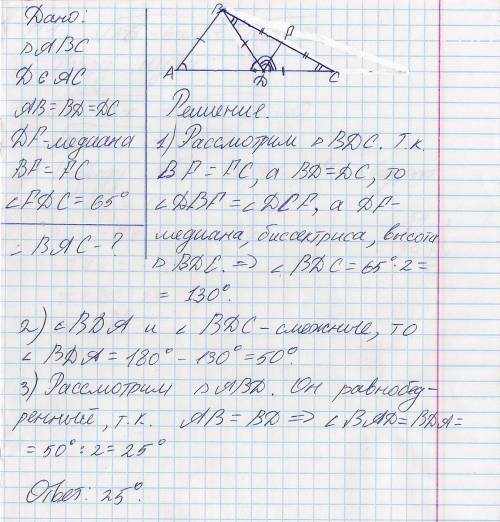 Дано:
▵ ABC
D ∈ AC
AB = BD = DC
DF - медиана
BF = FC
∠FDC = 65°
∠BAC - ?
B
F
A
D
C
Решение.
1) Рассмотрим ▵ BDC. Т.к.
BF = FC, а BD = DC, то
∠DBF = ∠DCF, а DF -
медиана, биссектриса, высота
▵ BDC. => ∠BDC = 65° · 2 =
= 130°.
2) ∠BDA и ∠BDC - смежные, то
∠BDA = 180° - 130° = 50°.
3) Рассмотрим ▵ABD. Он равнобед-
ренный, т.к. AB = BD => ∠BAD = BDA =
= 50° : 2 = 25°
Ответ: 25°.